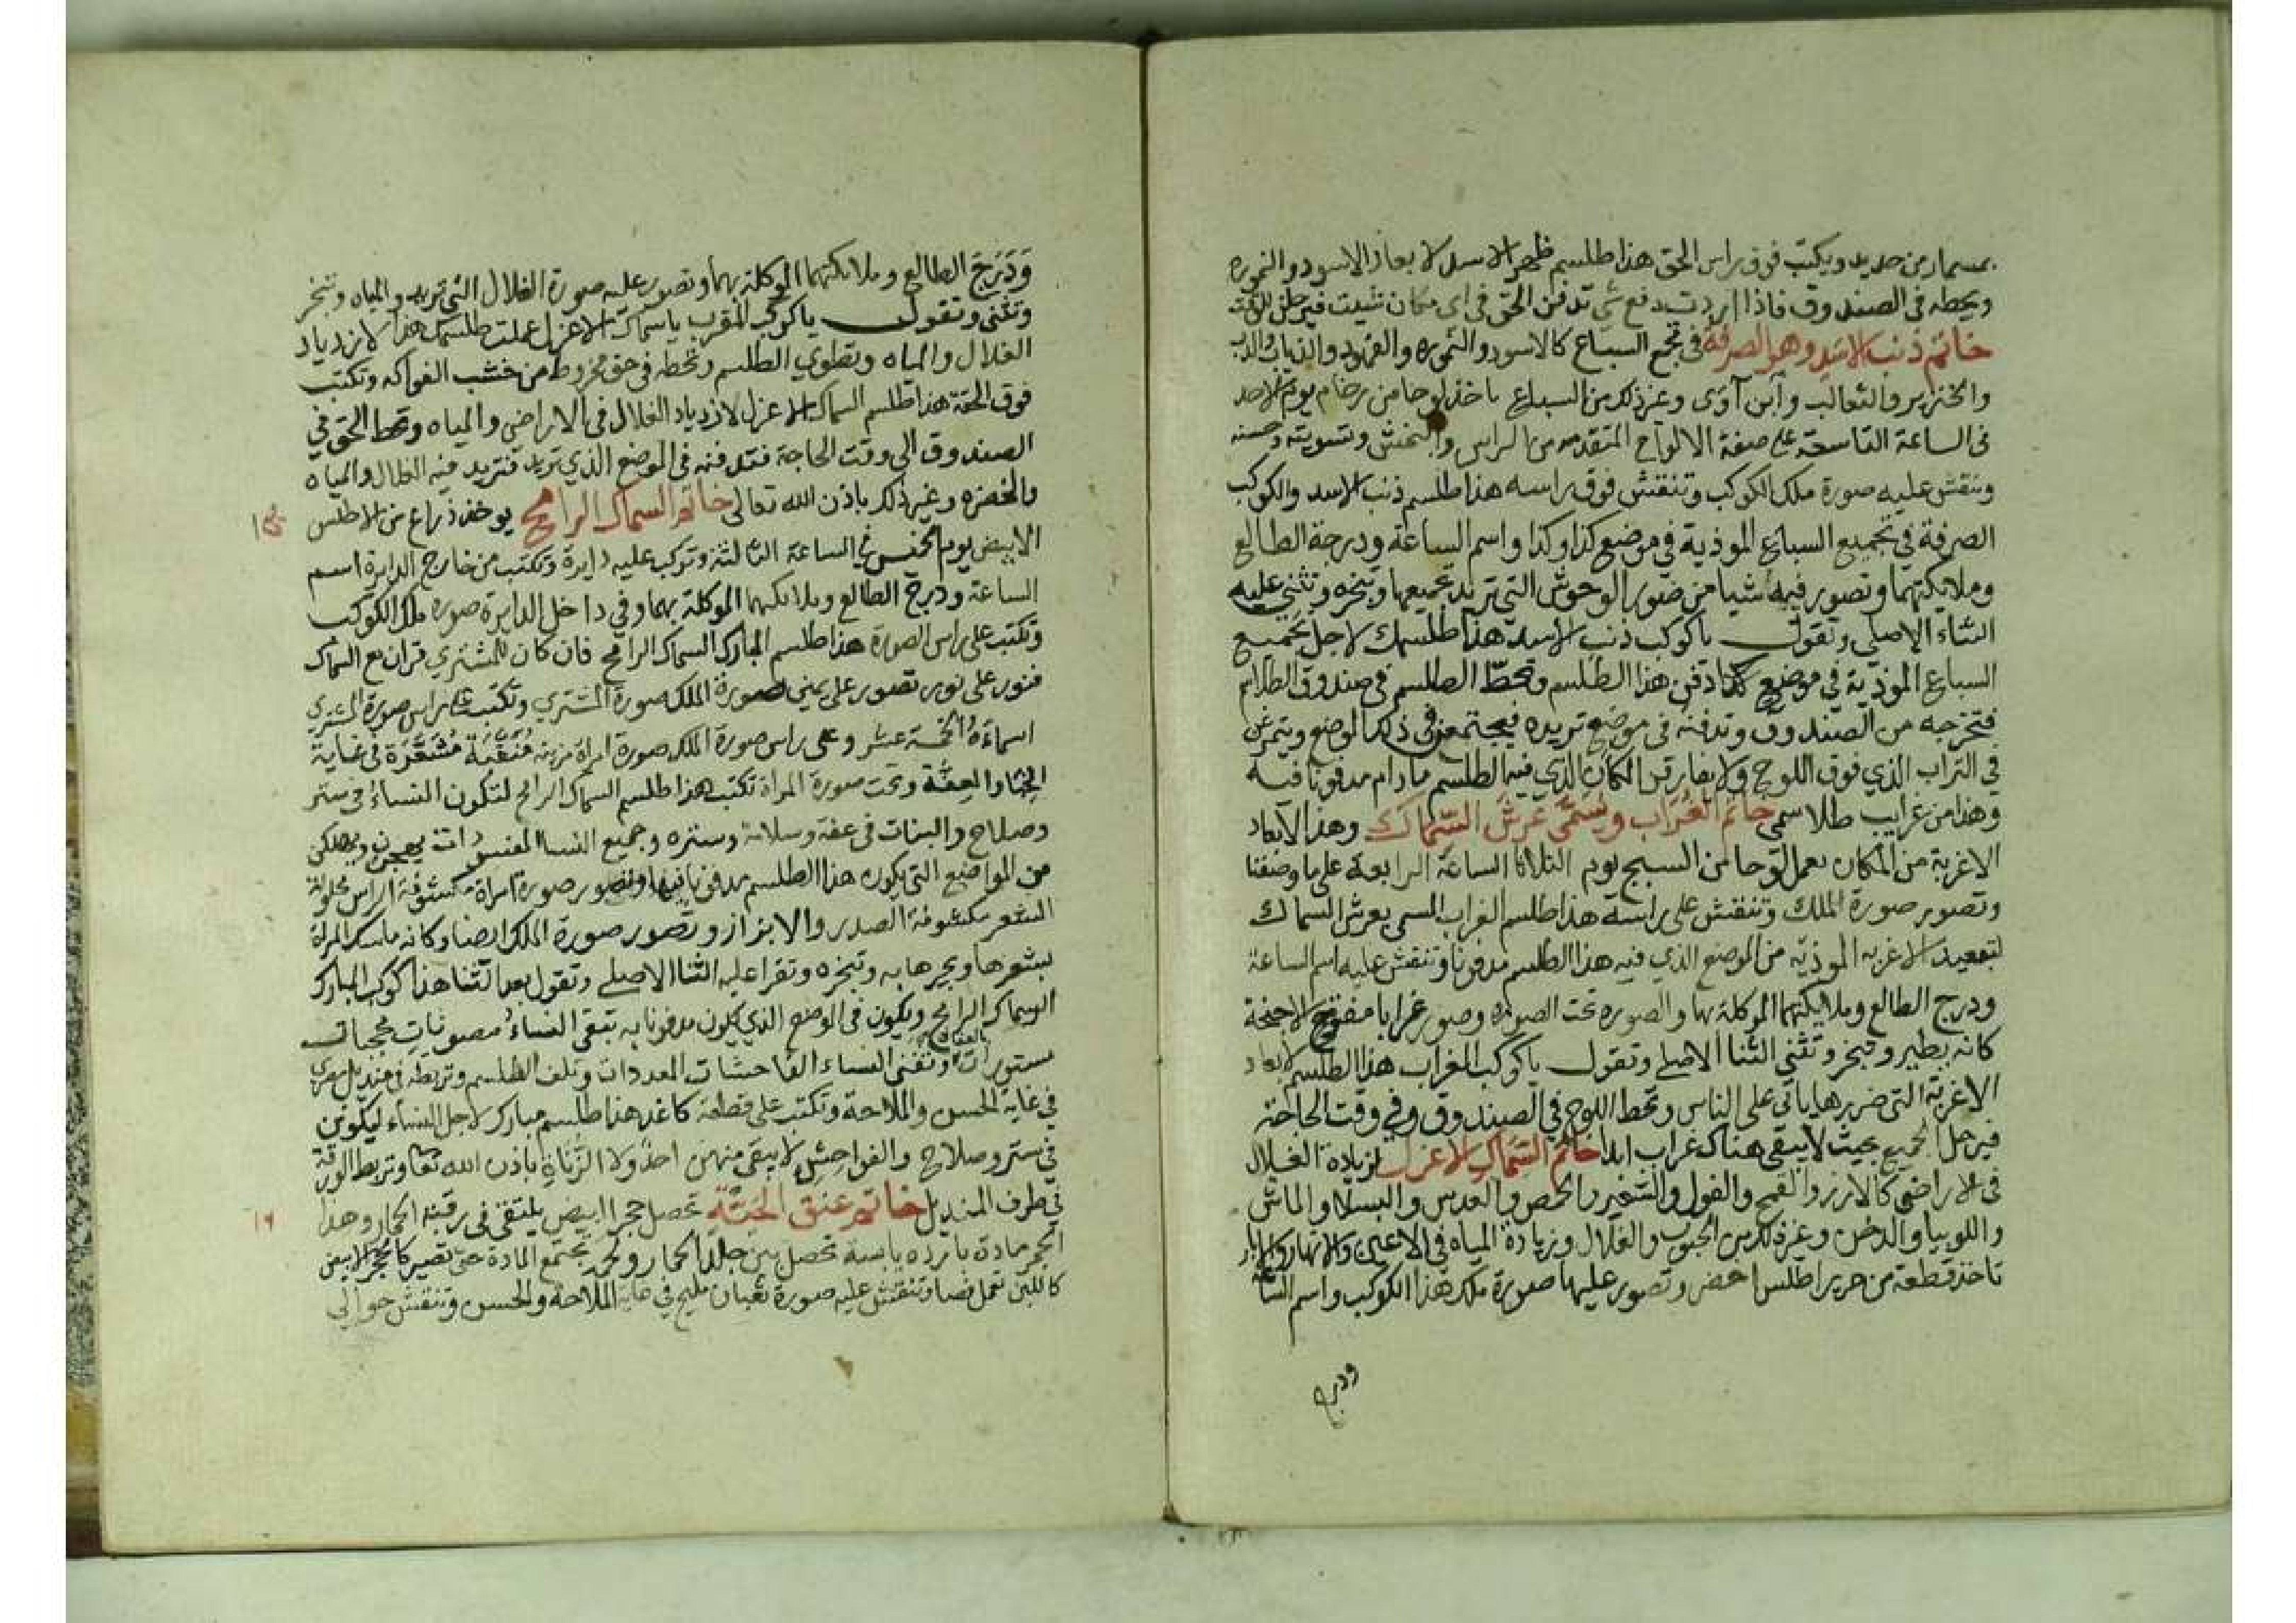 بمسمار من حديد ويكتب فوق راس الحق هذا طلسم ظهر الاسد لابعاد الاسود والنموره
ويحطه في الصندوق فاذا اردت دفع شي تدفن الحق في اى مكان شيت فيرحل للوقت
خاتم ذنب الاسد وهو الصرفة في تجمع السباع كالاسود والنموره والفهود والذياب والدب
والخنزير والثعالب وآبن آوى وغير ذلك من السباع ياخذ لوحا من رخام يوم الاحد
فى الساعة التاسعة على صفة الالواح المتقدمه من الراس والنخش وتسويته وحسنه
وينقش عليه صورة ملك الكوكب وتنقش فوق راسه هذا طلسم ذنب الاسد والكوكب
الصرفة في تجميع السباع الموذية في موضع كذا وكذا واسم الساعة ودرجة الطالع
وملايكتهما وتصور فيه شيا من صور الوحوش التي تريد تجميعها وتبخره وتثنى عليه
الثناء الاصلى وتقول ياكوكب ذنب الاسد هذا طلسمك لاجل تجميع
السباع الموذية في موضع كذا دفن هذا الطلسم وتحطّ الطلسم في صندوق الطلاسم
فتخرجه من الصندوق وتدفنه في موضع تريده فيجتمعن في ذلك الموضع ويتمرغن
في التراب الذي فوق اللوح ولا يفارقن المكان الذي فيه الطلسم ما دام مدفونا فيه
وهذا من غرايب طلاسمي خاتم الغراب ويسمى عرش السماك وهذا لابعاد
الاغربة من المكان يعمل لوحا من السبج يوم الثلاثا الساعة الرابعة على ما وصفنا
وتصور صورة الملك وتنقش على راسه هذا طلسم الغراب المسمى بعرش السماك
لتبعيد الاغربه الموذيه من الموضع الذي فيه هذا الطلسم مدفونا وتنقش عليه اسم الساعة
ودرج الطالع وملايكتهما الموكلة بهما والصوره تحت الصوره وصور غرابا مفتوح الاجنحة
كانه يطير وتبخر وتثنى الثنا الاصلى وتقول ياكوكب الغراب هذا الطلسم لابعاد
الاغربة التى ضررها ياتى على الناس وتحط اللوح في الصندوق وفي وقت الحاجة
فيرحل الجميع بحيث لا يبقى هناك غراب ابدا خاتم السماك الاعزل لزيادة الغلال
فى الاراضى كالارز والقمح والفول والشعير والحمص والعدس والبسلا والماش
واللوبيا والدخن وغير ذلك من الحبوب والغلال وزيادة المياه في الاعين والانهار والابار
تاخذ قطعة من حرير اطلس اخضر وتصور عليها صورة ملك هذا الكوكب واسم الساعة
ودرج
وَدَرَجَ الطالع وملايكتهما الموكلة بهما وتصور عليه صورة الغلال التى تريد والمياه وتبخر
وتثنى وتقول ياكوكب المقرب ياسماك الاعزل عملت طلسمك هذا لازدياد
الغلال والمياه وتطوي الطلسم وتحطه فى حق مخروط من خشب الفواكه وتكتب
فوق الحقة هذا طلسم السماك الاعزل لازدياد الغلال فى الاراضى والمياه وتحط الحق في
الصندوق الى وقت الحاجة فتدفنه فى الموضع الذي تريد فتزيد فيه الغلال والمياه
والخضره وغير ذلك باذن الله تعالى خاتم السماك الرامح يوخذ ذراع من الاطلس
الابيض يوم الخميس في الساعة الثالثة وتركب عليه دايرة وتكتب من خارج الدايرة اسم
الساعة ودرج الطالع وملايكتهما الموكلة بهما وفي داخل الدايرة صورة ملك الكوكب
وتكتب على راس الصورة هذا طلسم المبارك السماك الرامح فان كان للمشتري قران مع السماك
فنور على نور تصور على يمنى صورة الملك صورة المشتري وتكتب على راس صورة المشتري
اسماءهُ الخمسة عشر وعلى راس صورة الملك صورة امراة مزينه مُنَقَّبَة مُشَقَّرَة فى غاية
الحيا والعفة وتحت صورة المراة تكتب هذا طلسم السماك الرامح لتكون النساء فى ستر
وصلاح والبنات فى عفة وسلامة وستره وجميع النسا المفسدات يهجرن ويهلكن
من المواضع التى يكون هذا الطلسم مدفونا فيها وتصور صورة امراة مكشوفة الراس محلولة
الشعر مكشوفة الصدر والابزاز وتصور صورة الملك ايضا وكانه ماسك المراة
بشعرها ويجرها به وتبخره وتقرا عليه الثنا الاصلى وتقول بعد الثنا هذا كوكب المبارك
السماك الرامح ويكون فى الموضع الذي يكون مدفونا به تبقى النساء مصونات محجبات
مستورات بالعفاف وتفنى النساء الفاحشات المعددات وتلف الطلسم وتربطه فى منديل مصرى
في غاية الحسن والملاحة وتكتب على قطعة كاغد هذا طلسم مبارك لاجل النساء ليكونن
في ستر وصلاح والفواحش لا يبقى منهن احدٌ ولا الزناة باذن الله تعا وتربط الورقة
فى طرف المنديل خاتم عنق الحيّة تحصل حجرا ابيض يلتقى فى رقبة الحمار وهذا
الحجر مادة بارده يابسة تحصل بين جلد الحمار ولحمه تجتمع المادة حتى تصير كالحجر الابيض
كاللبن تعمل فصا وتنقش عليه صورة ثعبان مليح في غاية الملاحة والحسن وتنقش حوالى